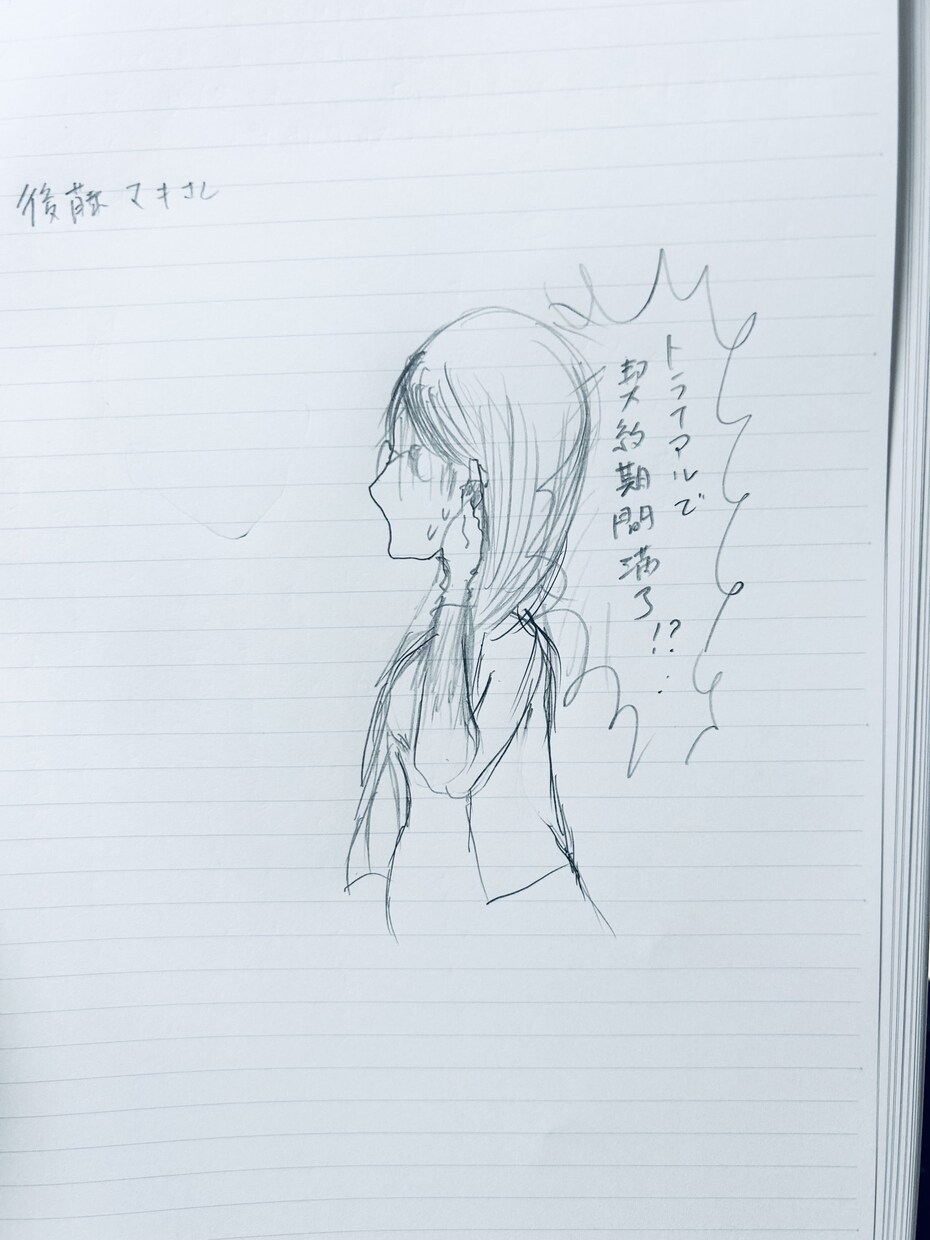 後藤マキさん
トライアルで
契約期間満了!?…